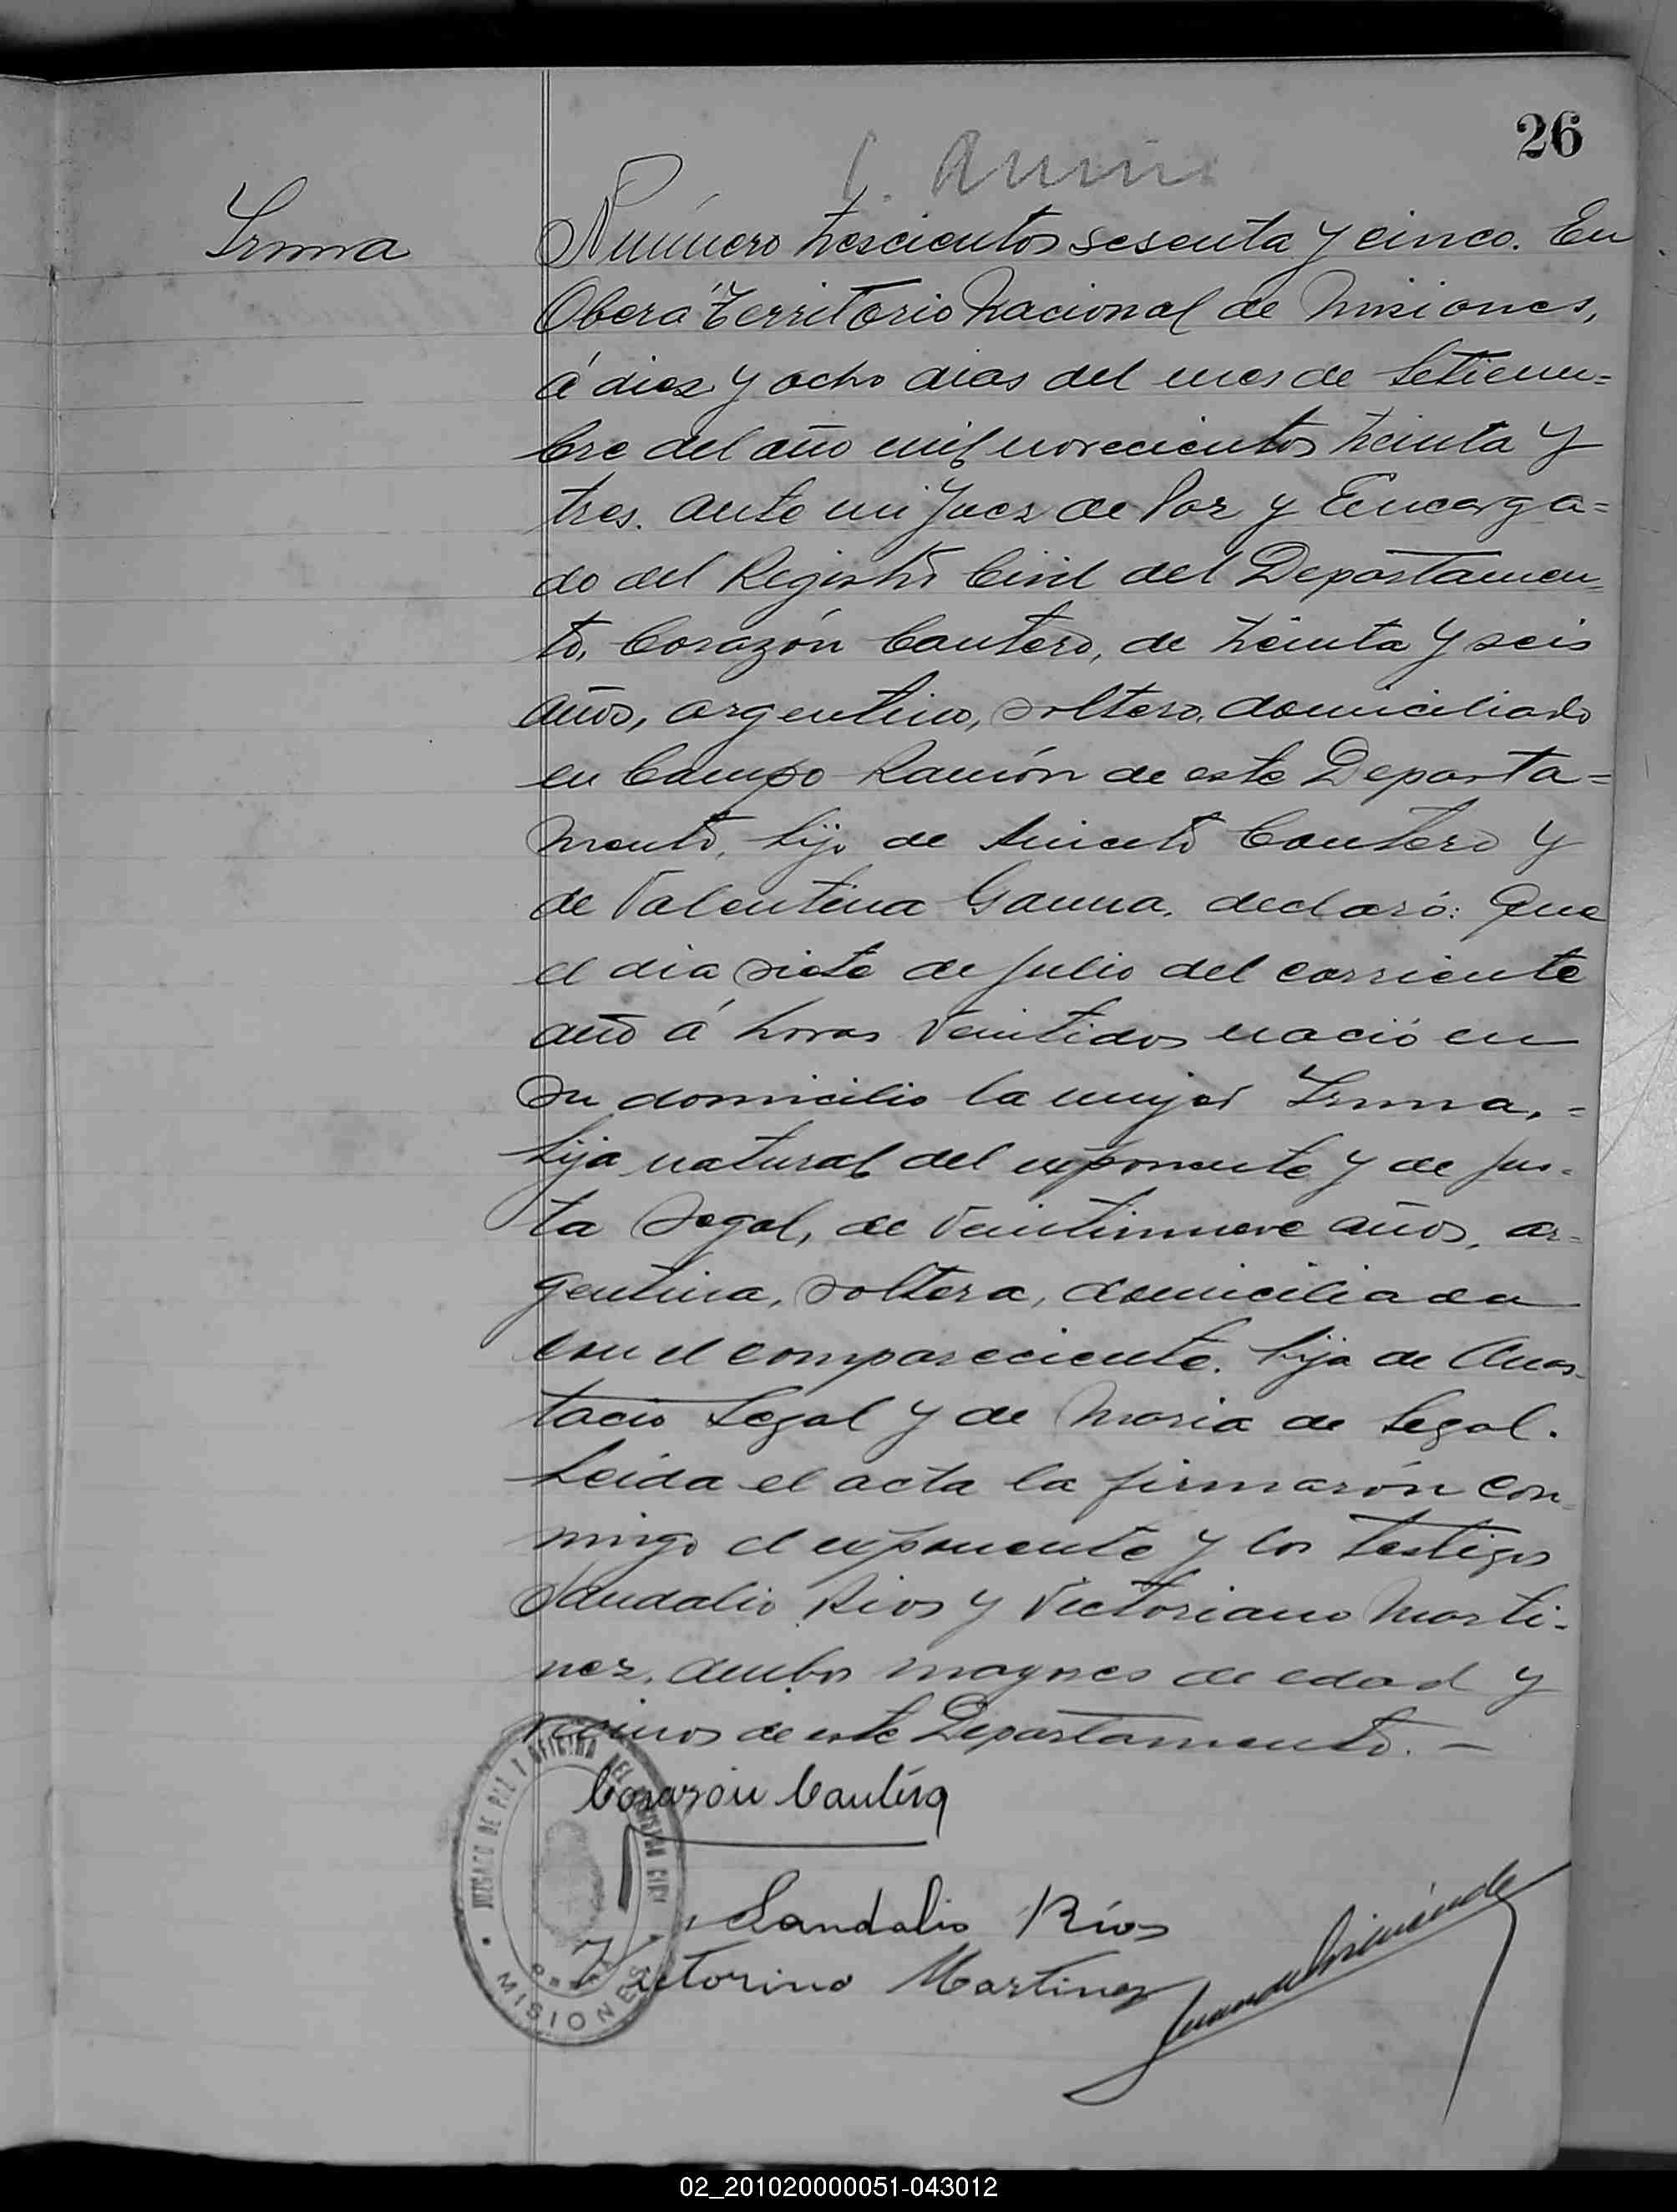 26
Irma
Número trescientos sesenta y cinco. En
Oberá Territorio Nacional de Misiones,
á diez y ocho dias del mes de Setiem=
bre del año mil novecientos treinta y
tres. ante mi Juez de Paz y Encarga=
do del Registro Civil del Departamen=
to, Corazón Cantero, de treinta y seis
años, argentino, soltero, domiciliado
en Campo Ramón de este Departa=
mento, hijo de Cantero y
de Valentina Gauna, declaró: Que
el dia siete de Julio del corriente
año á horas veintidos nació en
su domicilio la mujer Irma, =
hija natural del exponente y de Jus=
ta Segal, de veintinueve años, ar=
gentina, soltera, domiciliada
con el compareciente, hija de Anas=
tacio Segal y de Maria de Segal.
Leida el acta la firmarón con=
migo el exponente y los testigos
Sandalio Rios y Victoriano Marti=
nez, ambos mayores de edad y
vecinos de este Departamento. —
Corazón Cantero
Sandalio Ríos
Victorino Martinez
JUZGADO DE PAZ Y OFICINA DEL REGISTRO CIVIL
OBERÁ
MISIONES
02_201020000051-043012